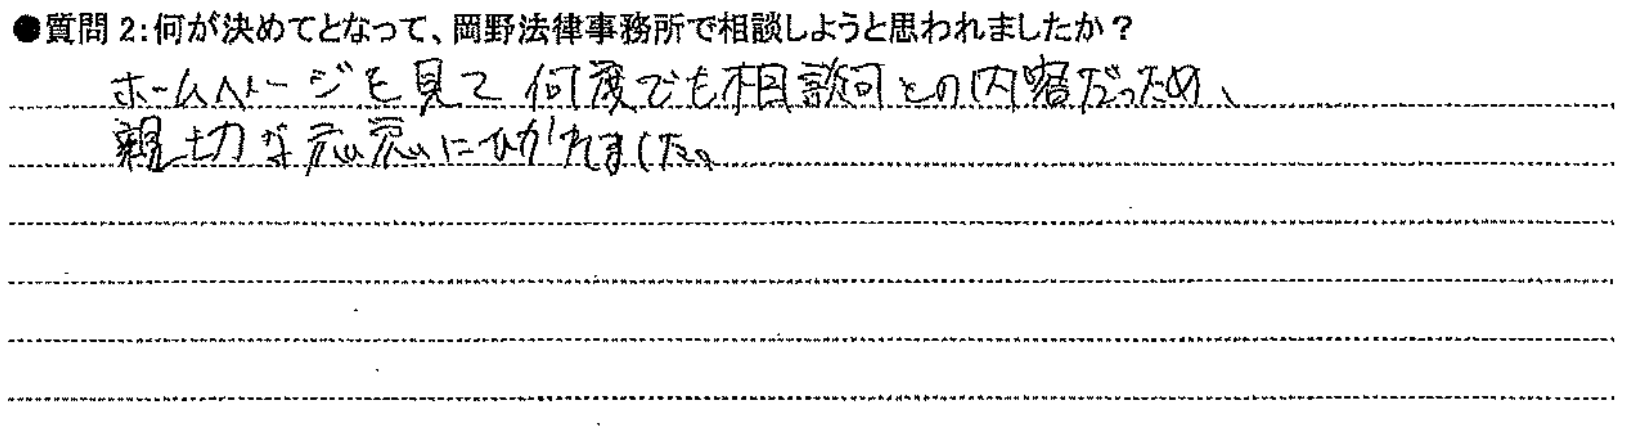 ●質問 2:何が決めてとなって、岡野法律事務所で相談しようと思われましたか？
ホームページを見て何度でも相談可との内容だったため、
親切な応対にひかれました。